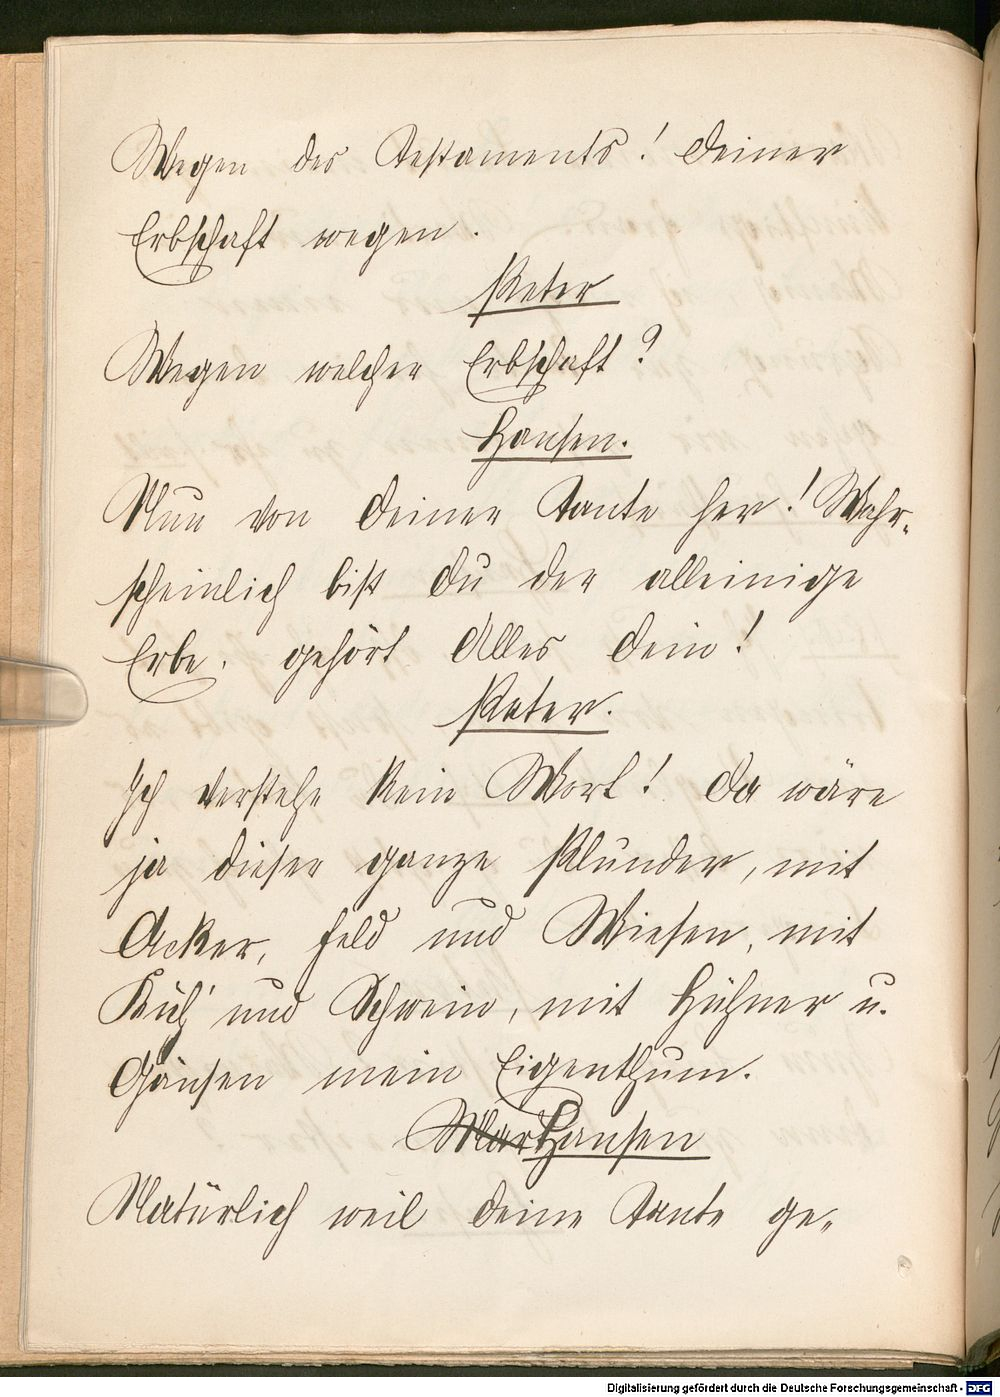 Wegen des Testaments! Deiner
Erbschaft wegen.
Peter
Wegen welcher Erbschaft?
Hansen.
Nun von Deiner Tante her! Wahr-
scheinlich bist Du der alleinige
Erbe. gehört Alles Dein!
Peter.
Ich verstehe kein Wort! Da wäre
ja dieser ganze Plunder, mit
Acker, Feld und Wiesen, mit
Küh' und Schwein, mit Hühner u.
Gänsen mein Eigenthum.
Mar Hansen
Natürlich weil Deine Tante ge-
Digitalisierung gefördert durch die Deutsche Forschungsgemeinschaft - DFG